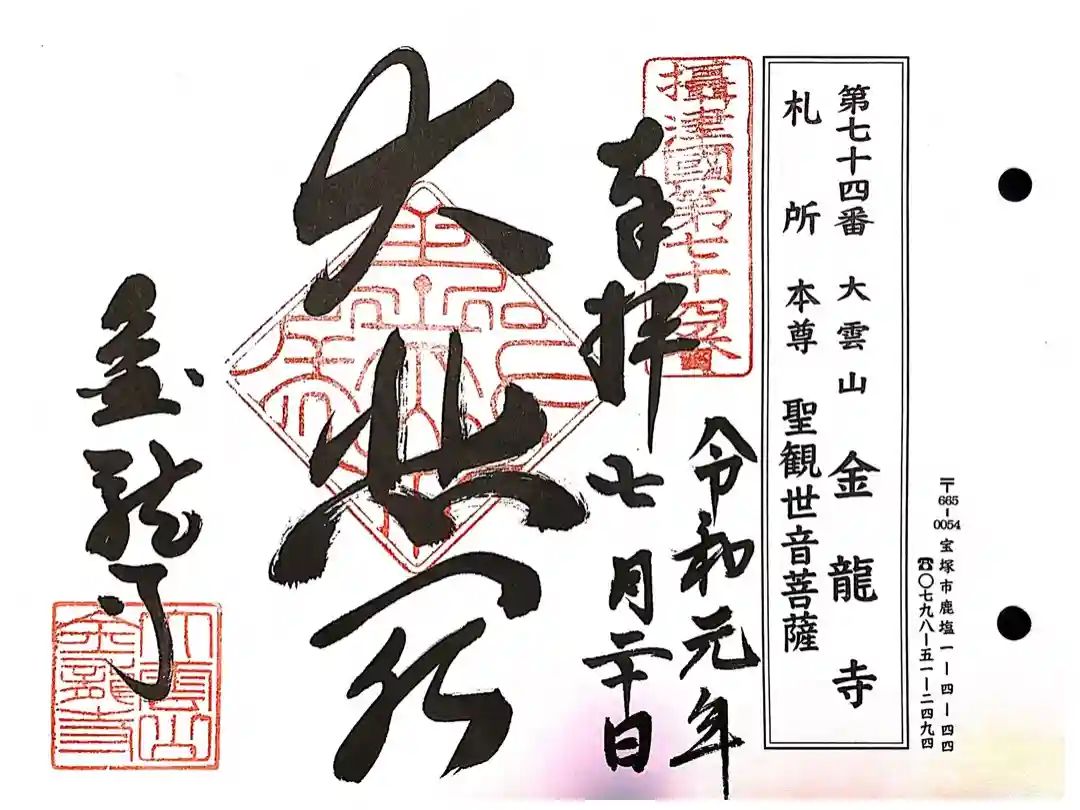 〒665-0054 宝塚市鹿塩一ー四ー四四
☎〇七九八ー五一ー二四九四
第七十四番 大雲山 金龍寺
札所 本尊 聖観世音菩薩
攝津國第七十四番
奉拝
令和元年
七月二十日
大悲閣
金龍寺
大雲山
金龍寺